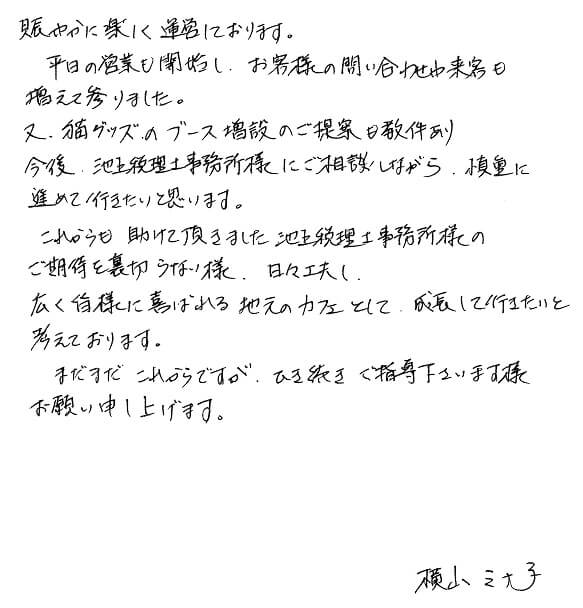 賑やかに楽しく運営しております。
平日の営業も開始し、お客様の問い合わせや来客も
増えて参りました。
又、猫グッズのブース増設のご提案も数件あり
今後、池上税理士事務所様にご相談しながら、慎重に
進めて行きたいと思います。
これからも助けて頂きました池上税理士事務所様の
ご期待を裏切らない様、日々工夫し、
広く皆様に喜ばれる地元のカフェとして、成長して行きたいと
考えております。
まだまだこれからですが、ひき続きご指導下さいます様
お願い申し上げます。
横山